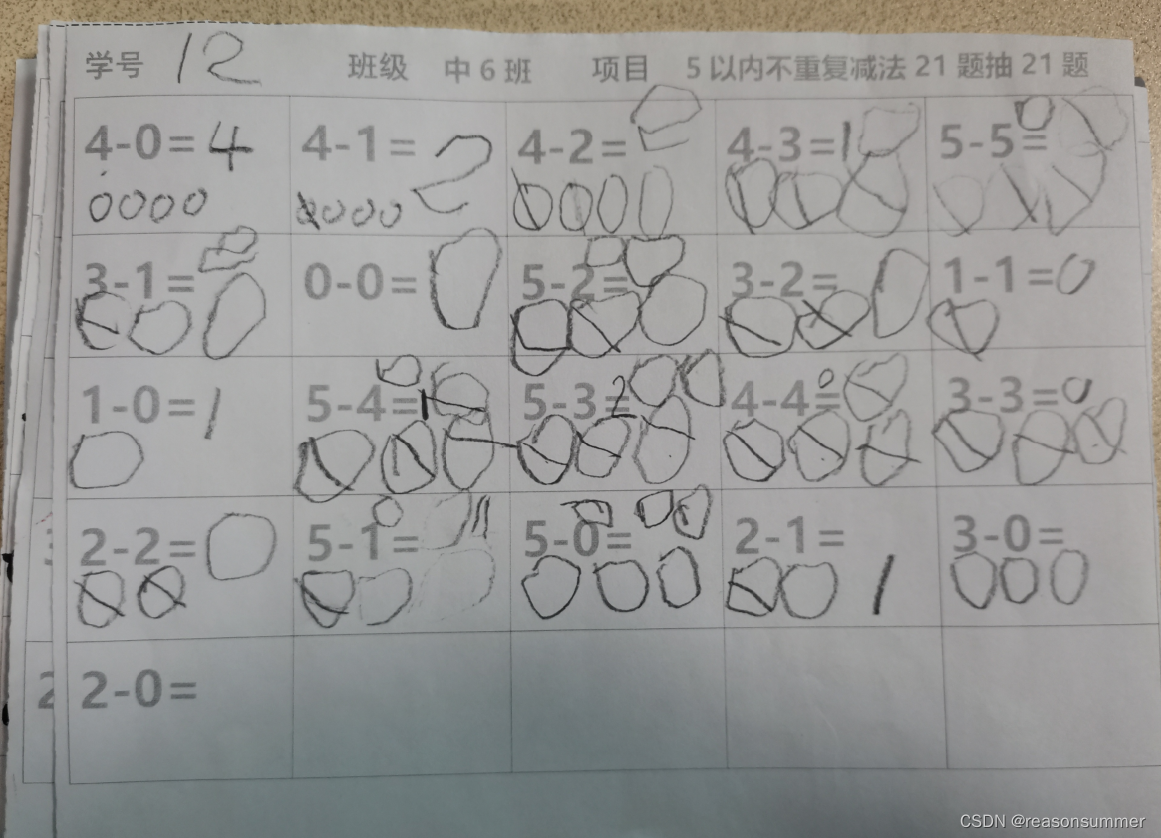 学号 12 班级 中6班 项目 5以内不重复减法21题抽21题
4-0=4 4-1=2 4-2= 4-3=1 5-5=0
3-1=2 0-0=0 5-2= 3-2= 1-1=0
1-0=1 5-4=1 5-3=2 4-4=0 3-3=0
2-2=0 5-1= 5-0= 2-1= 1 3-0=
2-0=
CSDN @reasonsummer